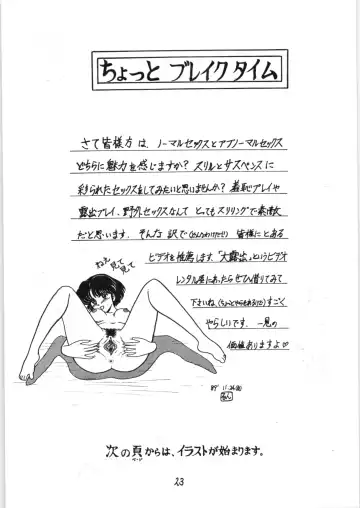 ちょっと ブレイクタイム
さて皆様方は、ノーマルセックスとアブノーマルセックス
どちらに魅力を感じますか？スリルとサスペンスに
彩られたセックスをしてみたいと思いませんか？羞恥プレイや
露出プレイ、野外セックスなんて とってもスリリングで素敵
だと思います。そんな訳で(どんなわけだ) 皆様にとある
ビデオを推薦します。"大露出"というビデオ
レンタル屋にあったらぜひ借りてみて
下さいね。(ちょっとやらせもあるけど)すごく
やらしいです。一見の
価値ありますよ♡
ねぇ 見て 見て
89 11.26
次の頁からは、イラストが始まります。
ページ
23